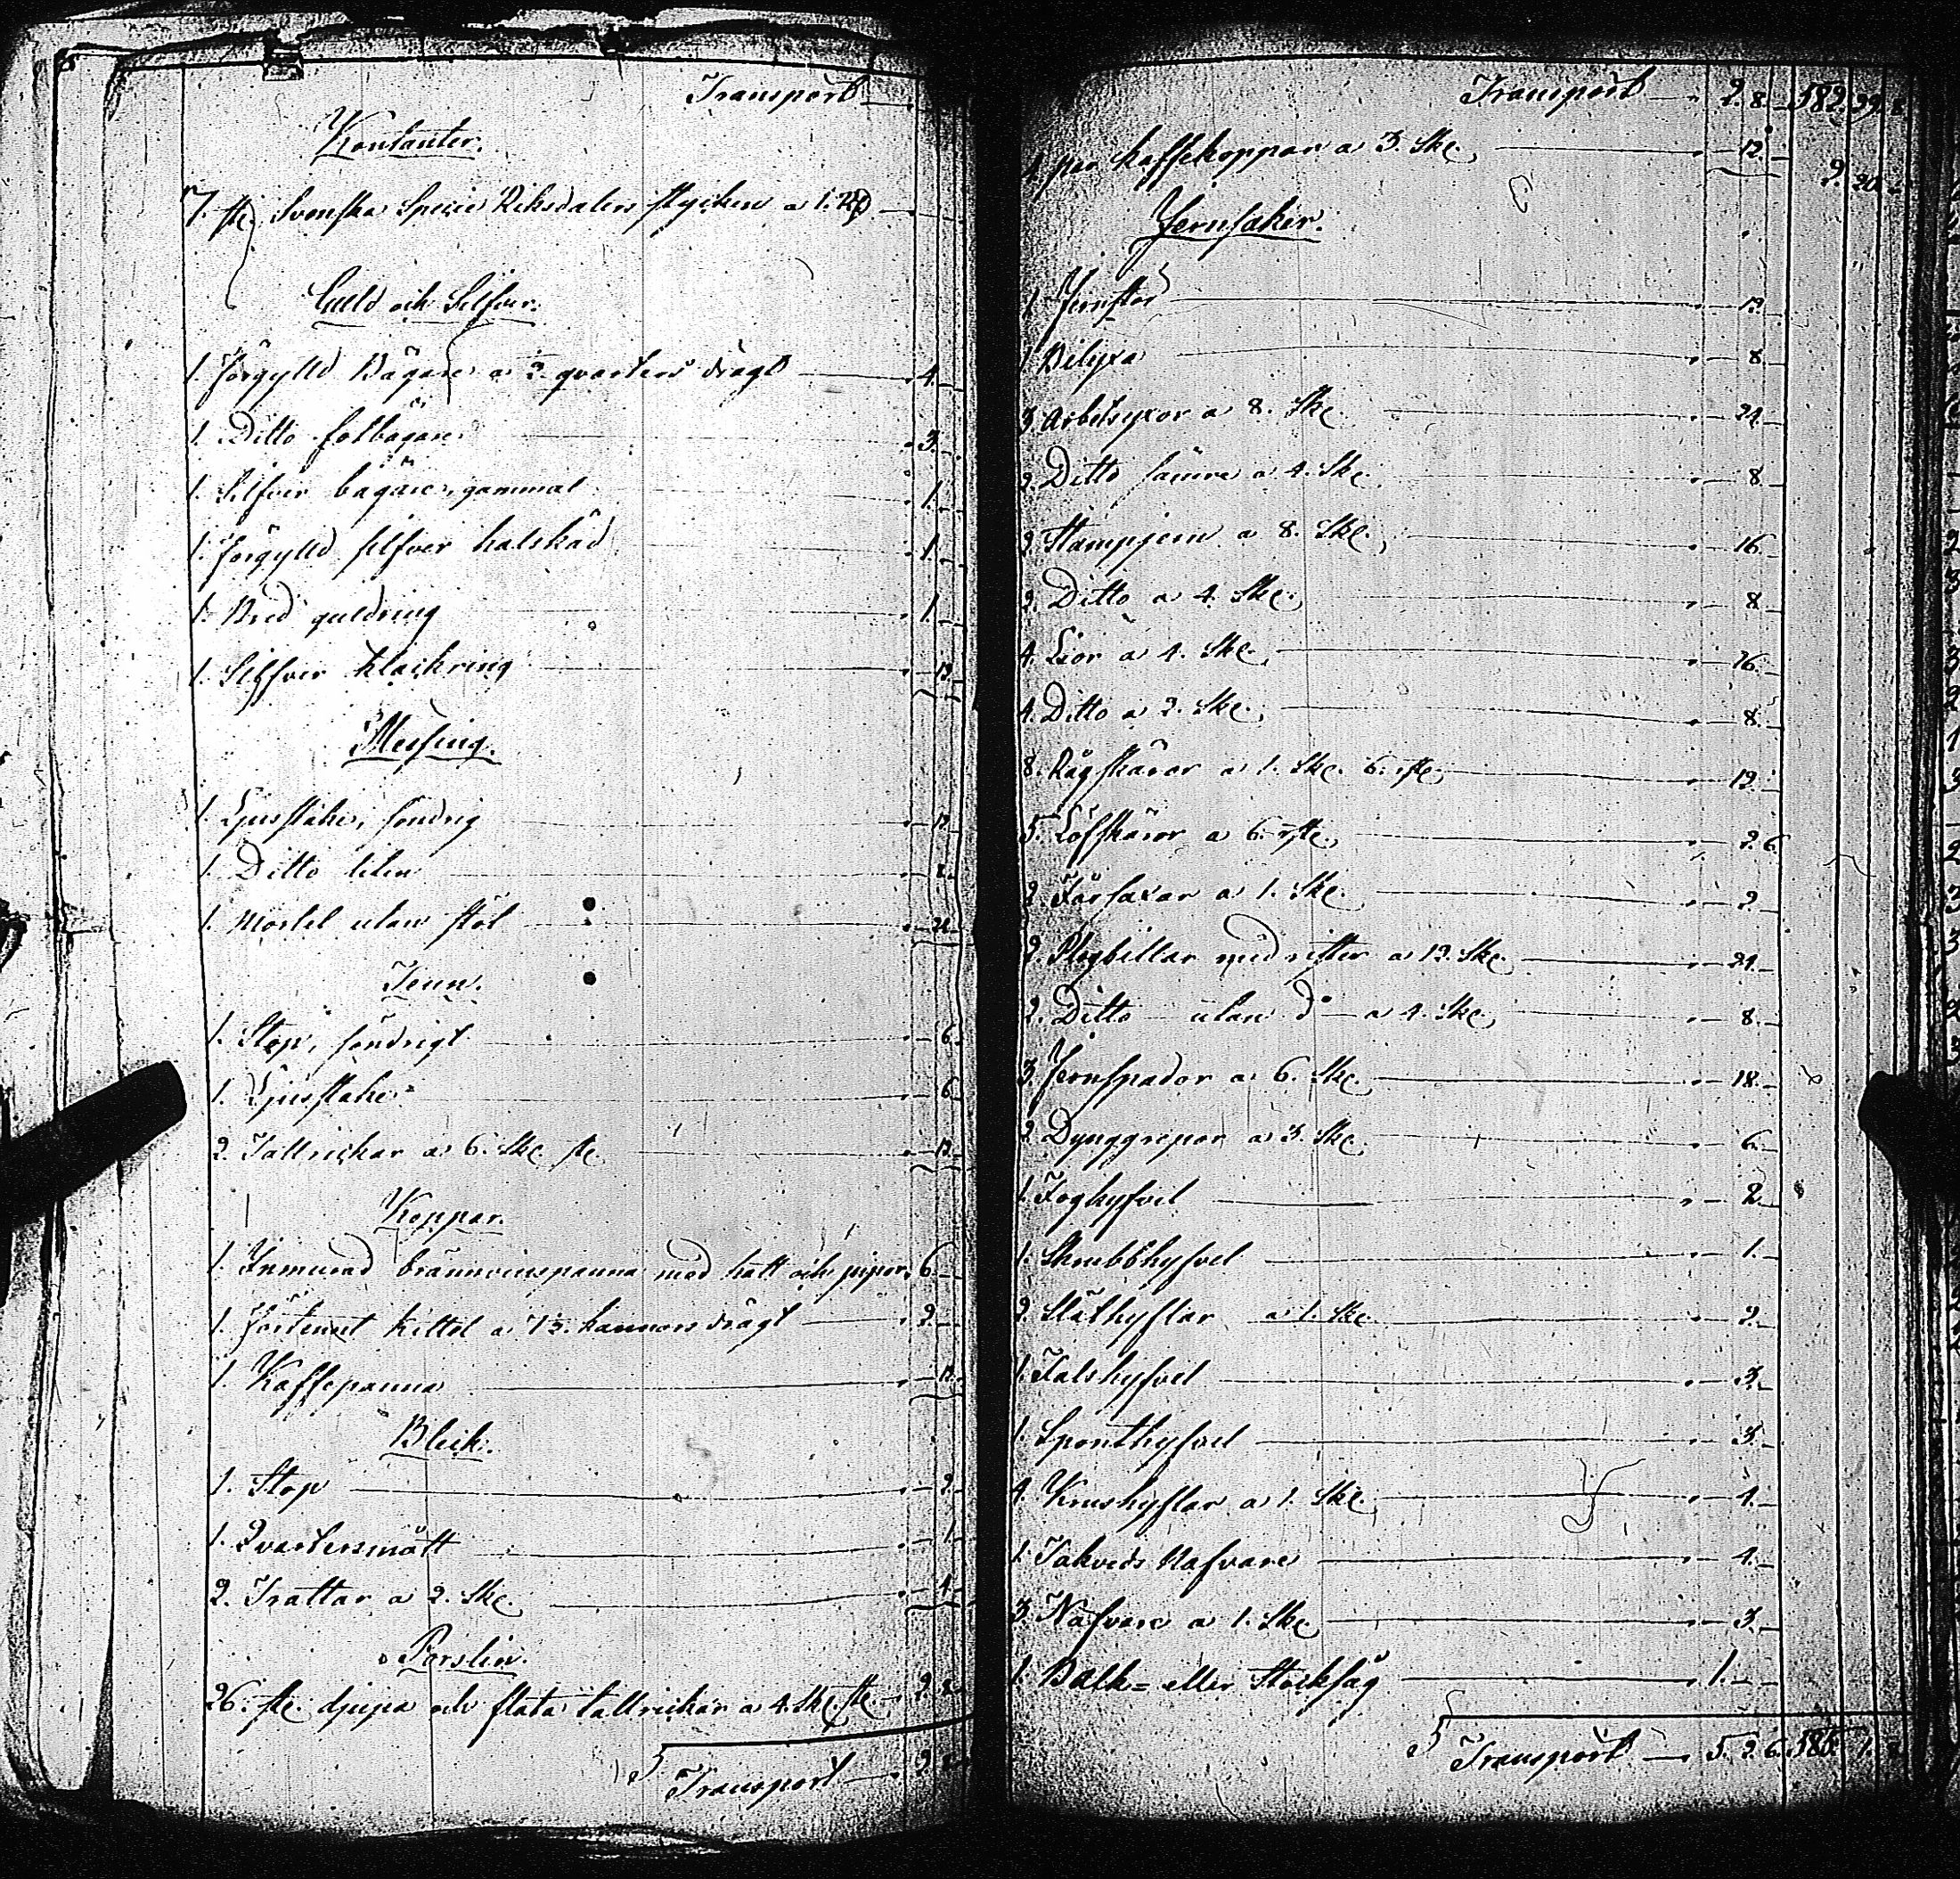 Transport
Kontanter.
7. st. Svenska Specie Riksdalers stycken a 1. Rd
Guld och Silfver.
1. förgylld Bägare a 2 qvarters drägt — 4. —
1. Ditto fotbägare — 3. —
1. Silfver bägare, gammal — 1. —
1. förgylld silfver halskäd — 1. —
1. Bred guldring — 1. —
1. Silfver klackring — 12.
Messing.
1. Ljusstake, söndrig — 12.
1. Ditto liten
1. Mortel utan stöt — 24.
Tenn.
1. Stop, söndrigt — 6.
1. Ljusstake — 6.
2. Tallrickar a 6. Sk. st. — 12.
Koppar.
1. Inmurad bränvinspanna med hatt och pipor 6. —
1. förtennt kittel a 1½. kannors drägt — 2. —
1. Kaffepanna — 12.
Bleck.
1. Stop — 2.
1. Qvartersmått — 1.
2. Trattar a 2. Sk. — 4.
Porslin.
26. st. djupa och flata tallrickar a 4. Sk. st. — 2. 8.
Transport — 2. 8.
Transport — 2. 8. — 582. 29. 8.
4 par kaffekoppar a 3. Sk. — 12. — 2. 20. —
Jernsaker.
1 Jernstör — 12. —
1 Bilyxa — 8. —
3 Arbetsyxor a 8. Sk. — 24. —
2. Ditto sämre a 4. Sk. — 8. —
2. Stampjern a 8. Sk. — 16. —
2. Ditto a 4. Sk. — 8. —
4. Lior a 4. Sk. — 16. —
4. Ditto a 2. Sk. — 8. —
8. Rågskäror a 1. Sk. 6. rst. — 12. —
5. Löfskäror a 6. rst. — 2. 6.
2 Fårsaxar a 1. Sk. — 2 —
2. Plogbillar med rister a 12. Sk. — 24. —
2. Ditto — utan do — a 4. Sk. — 8. —
3. Jernspador a 6. Sk. — 18. —
2. Dynggrepar a 3. Sk. — 6. —
1. Foghyfvel — 2. —
1. Skrubbhyfvel — 1. —
2. Släthyflar a 1. Sk. — 2. —
1. Falshyfvel — 3. —
1. Sponthyfvel — 3. —
4. Krushyflar a 1. Sk. — 4. —
1. Takveds Nafvare — 4. —
3. Nafvare a 1. Sk. — 3. —
1. Balk= eller Stocksåg — 1. — —
Transport — 5. 2. 6. 585. 1. 8.